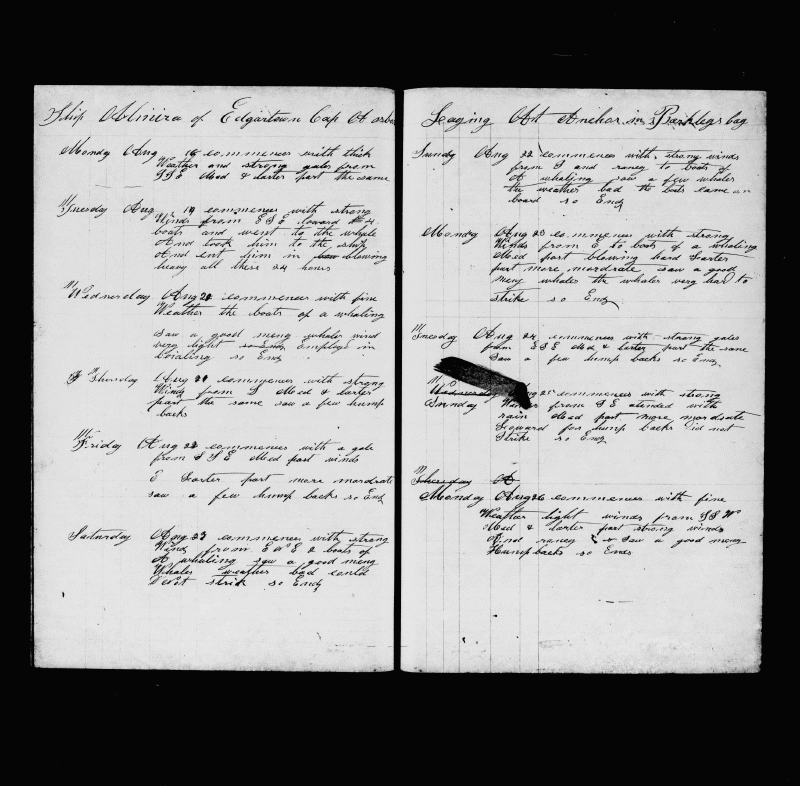 Ship Almira of Edgartown Cap A
Monday Aug 18 commences with thick
Weather and strong gales from
SSE Med & larter part the same
Tuesday Aug 19 commences with strong
Winds from ESE toward
boats and went to the whale
And took him to the ship
And cut him in blowing
heavy all these 24 hours
Wadnerday Aug 20 commences with fine
Weather the boats of a whaling
saw a good meny whales wind
very light so Endz Employed in
boialing so Endz
Thursday Aug 21 commences with strong
Winds from S Med & larter
part the same saw a few hump
backs
Friday Aug 22 commences with a gale
from SSE Med part winds
E Larter part more mordrate
saw a few hump backs so Endz
Saturday Aug 23 commences with strong
Winds from E 2 boats of
A whaling saw a good meny
Whales weather bad could
Not strik so Endz
Laying At Anchor in bay
Sunday Aug 22 commences with strong winds
from S and raney to boats of
A whaling saw a few whales
the weather bad the bots came on
board so Endz
Monday Aug 23 commences with strong
Winds from E to boats of a whaling
Med part blowing hard Larter
part more mordrate saw a good
meny whales the whales very har to
strike so Endz
Tuesday Aug 24 commences with strong gales
from ESE Med & larter part the same
Saw a few hump backs so Endz
Wadnerday
Sunday Aug 25 commences with strong
from SE atended with
rain Med part more mordrate
Loward for hump backs did not
Strike so Endz
A
Monday Aug 26 commences with fine
Weather light winds from SSW
Med & larter part strong winds
And raney & saw a good meny
Humpbacks so Endes